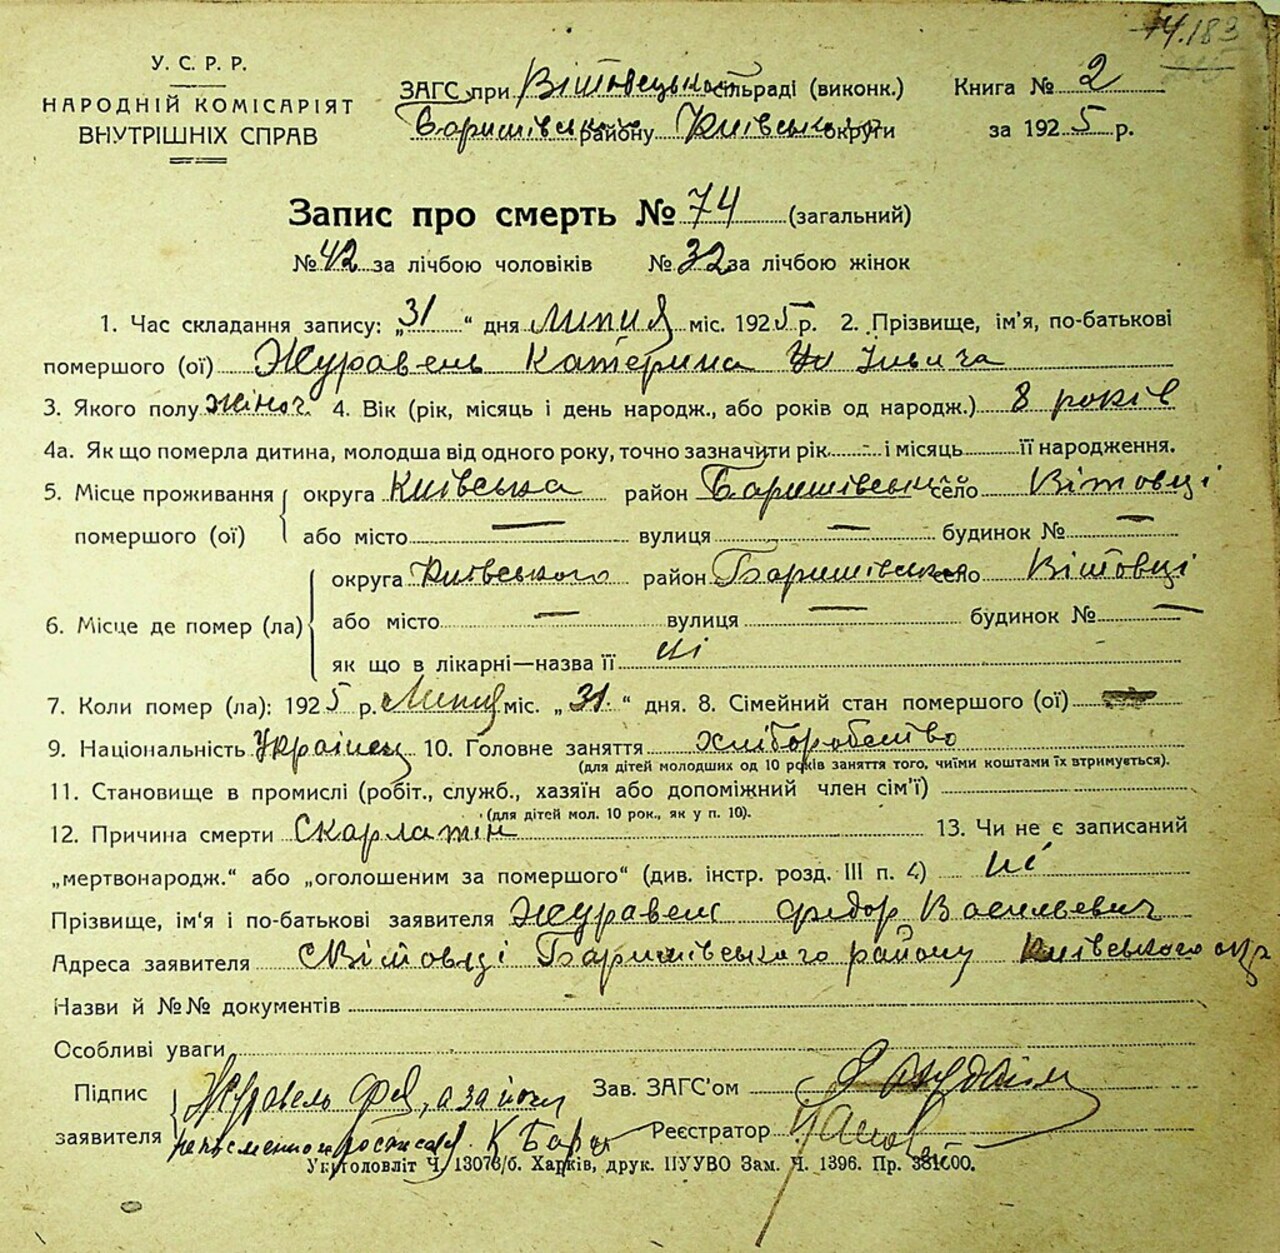 14.183
У. С. Р. Р.
НАРОДНІЙ КОМІСАРІЯТ
ВНУТРІШНІХ СПРАВ
ЗАГС при Вітовецькой сільраді (виконк.) Книга № 2
Баришівського району Київської округи за 1925 р.
Запис про смерть № 74 (загальний)
№ 42 за лічбою чоловіків № 32 за лічбою жінок
1. Час складання запису: „31“ дня Липня міс. 1925 р. 2. Прізвище, ім'я, по-батькові
помершого (ої) Журавель Катерина Ільвича
3. Якого полу жіноч. 4. Вік (рік, місяць і день народж., або років од народж.) 8 років
4а. Як що померла дитина, молодша від одного року, точно зазначити рік - і місяць її народження.
5. Місце проживання округа Київська район Баришівський село Вітовці
помершого (ої) або місто — вулиця — будинок № —
округа Київського район Баришівський село Вітовці
6. Місце де помер (ла) або місто — вулиця — будинок № —
як що в лікарні—назва її ні
7. Коли помер (ла): 1925 р. Липня міс. „31.“ дня. 8. Сімейний стан помершого (ої)
9. Національність Українец 10. Головне заняття хліборобство
(для дітей молодших од 10 років заняття того, чиїми коштами їх втримується).
11. Становище в промислі (робіт., служб., хазяїн або допоміжний член сім'ї)
(для дітей мол. 10 рок., як у п. 10).
12. Причина смерти Скарлатін 13. Чи не є записаний
„мертвонародж.“ або „оголошеним за помершого“ (див. інстр. розд. III п. 4) ні
Прізвище, ім'я і по-батькові заявителя Журавель Федор Васильевич
Адреса заявителя С Вітовці Баришівського району Київського окр
Назви й №№ документів
Особливі уваги
Підпис Журавель Фед, а за його Зав. ЗАГС'ом
заявителя неписменного росписався К Реєстратор
Укрголовліт Ч. 13073/б. Харків, друк. ПУУВО Зам. Ч. 1396. Пр. 381000.